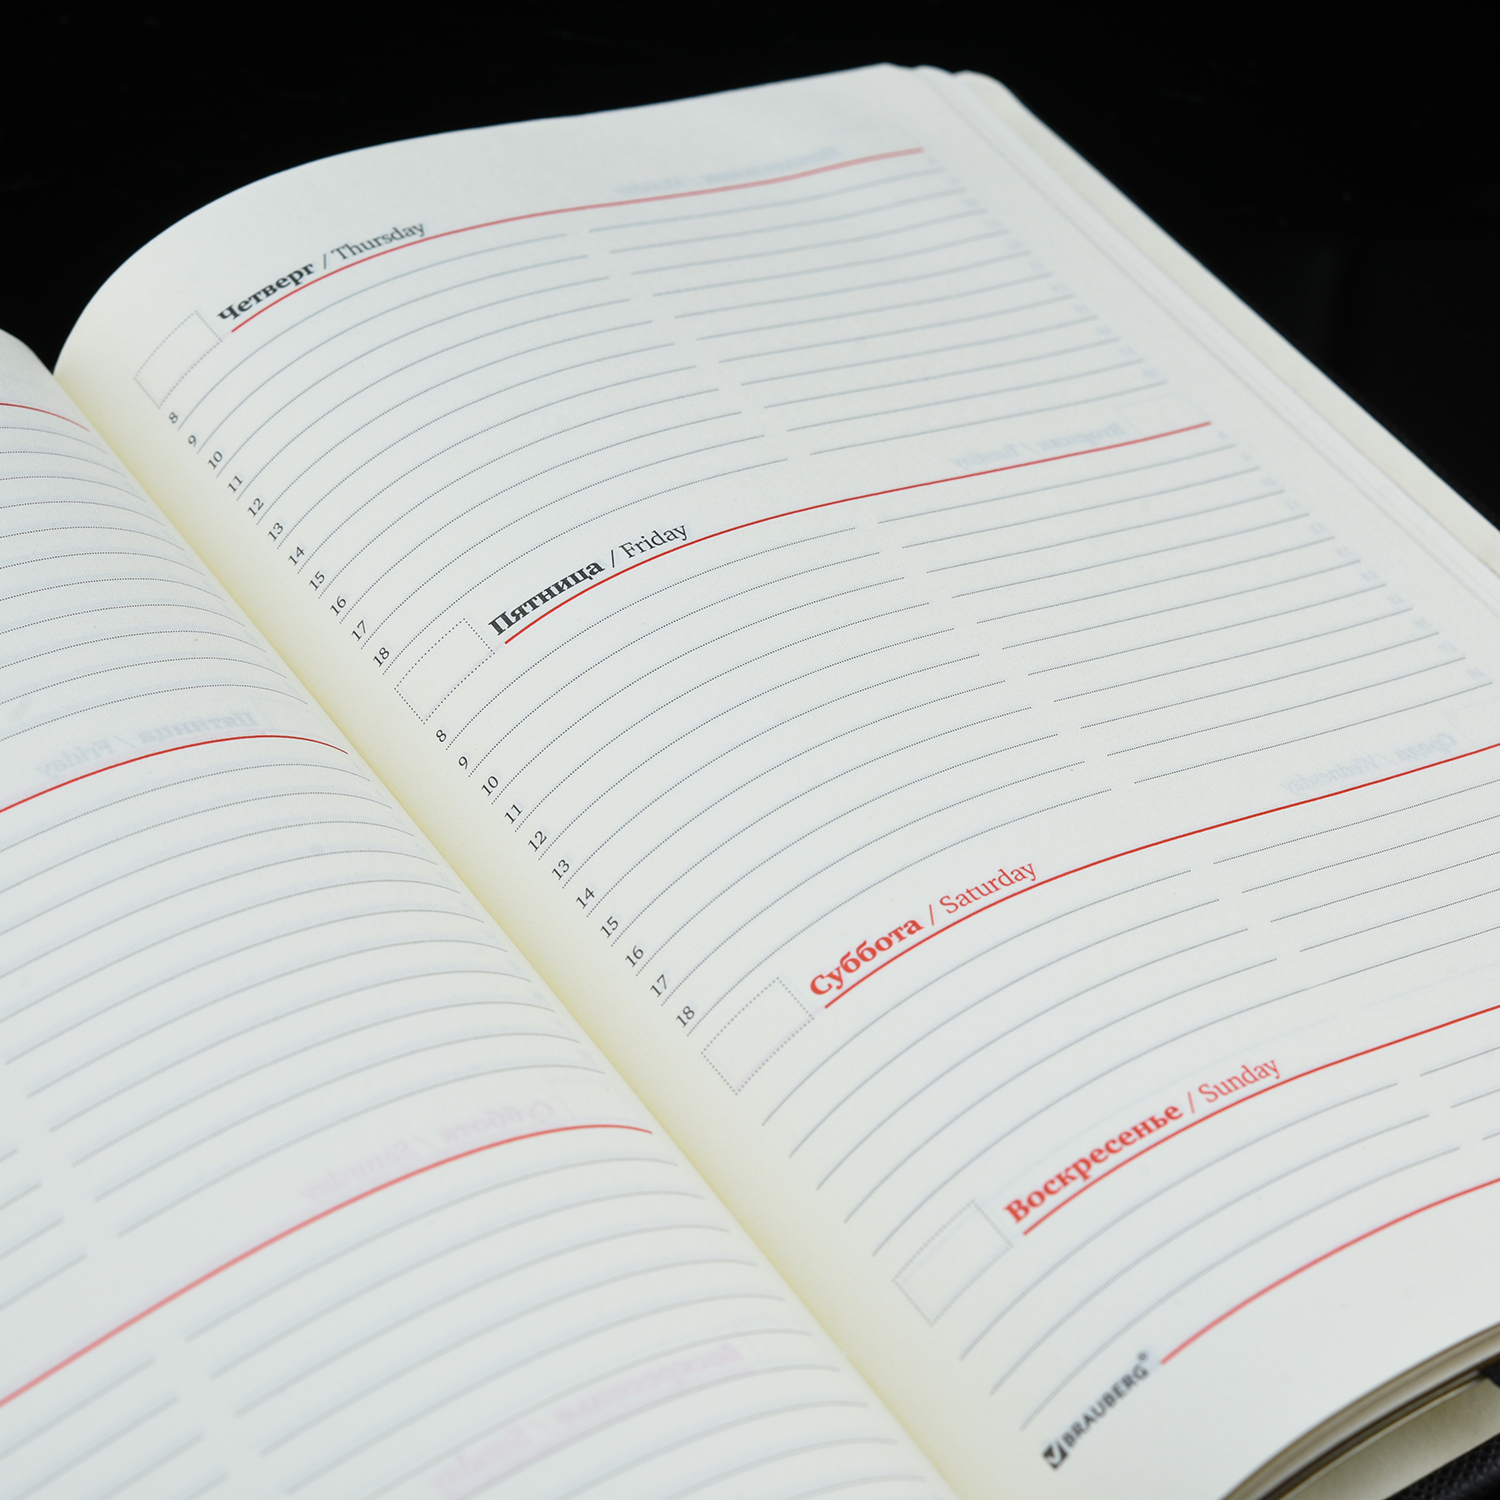 Четверг / Thursday
8
9
10
11
12
13
14
15
16
17
18
Пятница / Friday
8
9
10
11
12
13
14
15
16
17
18
Суббота / Saturday
Воскресенье / Sunday
BRAUBERG®